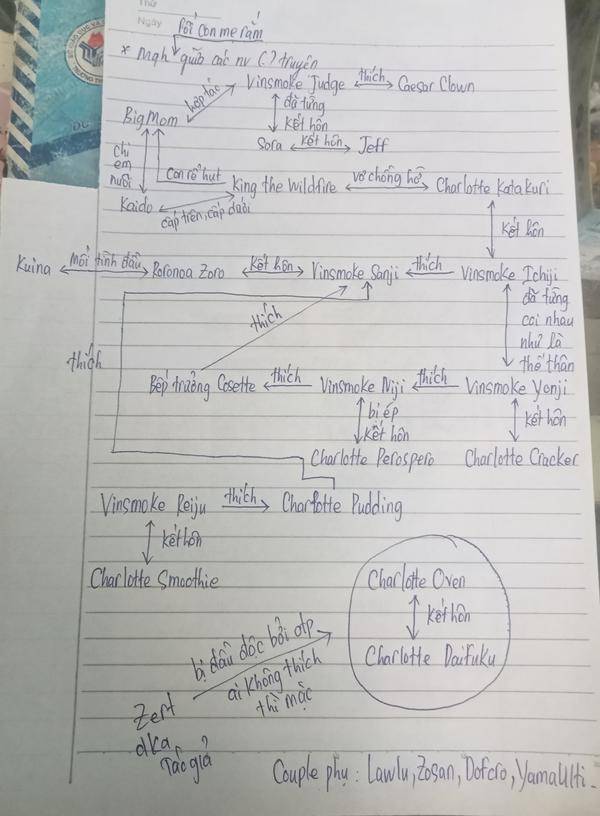 Thứ
Ngày
Rối con mẹ rắm
* Mqh giữa các nv () truyện
Vinsmoke Judge thích Caesar Clown
hợp tác
đã từng
kết hôn
BigMom
Sora kết hôn Jeff
chị
em
nuôi
Con rể hụt
King the Wildfire vợ chồng hờ Charlotte Katakuri
Kaido
cấp trên, cấp dưới
kết hôn
Kuina mối tình đầu Roronoa Zoro kết hôn Vinsmoke Sanji thích Vinsmoke Ichiji
thích
đã từng
coi nhau
như là
thế thân
thích
Bếp trưởng Cosette thích Vinsmoke Niji thích Vinsmoke Yonji
bị ép
kết hôn
kết hôn
Charlotte Perospero Charlotte Cracker
Vinsmoke Reiju thích Charlotte Pudding
kết hôn
Charlotte Smoothie
Charlotte Oven
kết hôn
Charlotte Daifuku
bị đầu độc bởi otp
ai không thích
thì mặc
Zert
aka
Tác giả
Couple phụ : Lawlu, Zosan, Dofcro, YamaUlti.